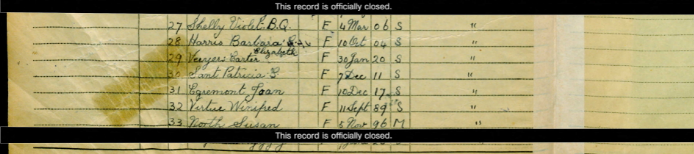 This record is officially closed.
27 Shelly Violet B.Q. F 4 Mar 06 S "
28 Harris Barbara F 10 Oct 04 S "
Elizabeth
29 Carter F 30 Jan 20 S "
30 Sant Patricia G. F 7 Dec 11 S "
31 Egremont Joan F 10 Dec 17 S "
32 Virtue Winifred F 11 Sept 89 S "
33 North Susan F 5 Nov 96 M "
This record is officially closed.